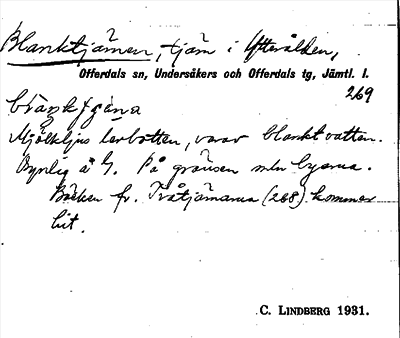 Blanktjärnen, tjärn i Ytterolden,
Offerdals sn, Undersåkers och Offerdals tg, Jämtl. l.
269
Mjölkljus lerbotten, varav blankt vatten.
Synlig å G. På gränsen mln byarna.
Bäcken fr. Tvåtjärnarna (268) kommer
hit.
C. LINDBERG 1931.